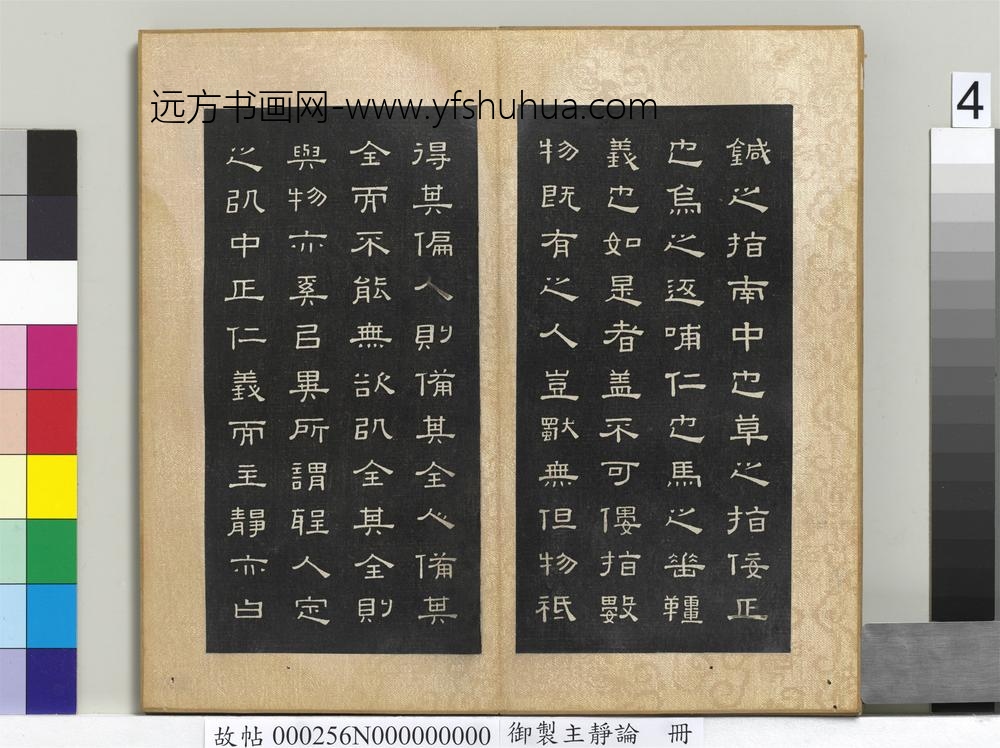 远方书画网-www.yfshuhua.com
4
鍼之指南中也草之指佞正
也烏之返哺仁也馬之垂韁
義也如是者盖不可僂指數
物既有之人豈獨無但物祇
得其偏人則備其全心備其
全而不能無欲以全其全則
與物亦奚以異所謂聖人定
之以中正仁義而主靜亦曰
故帖 000256N000000000 御製主靜論 冊